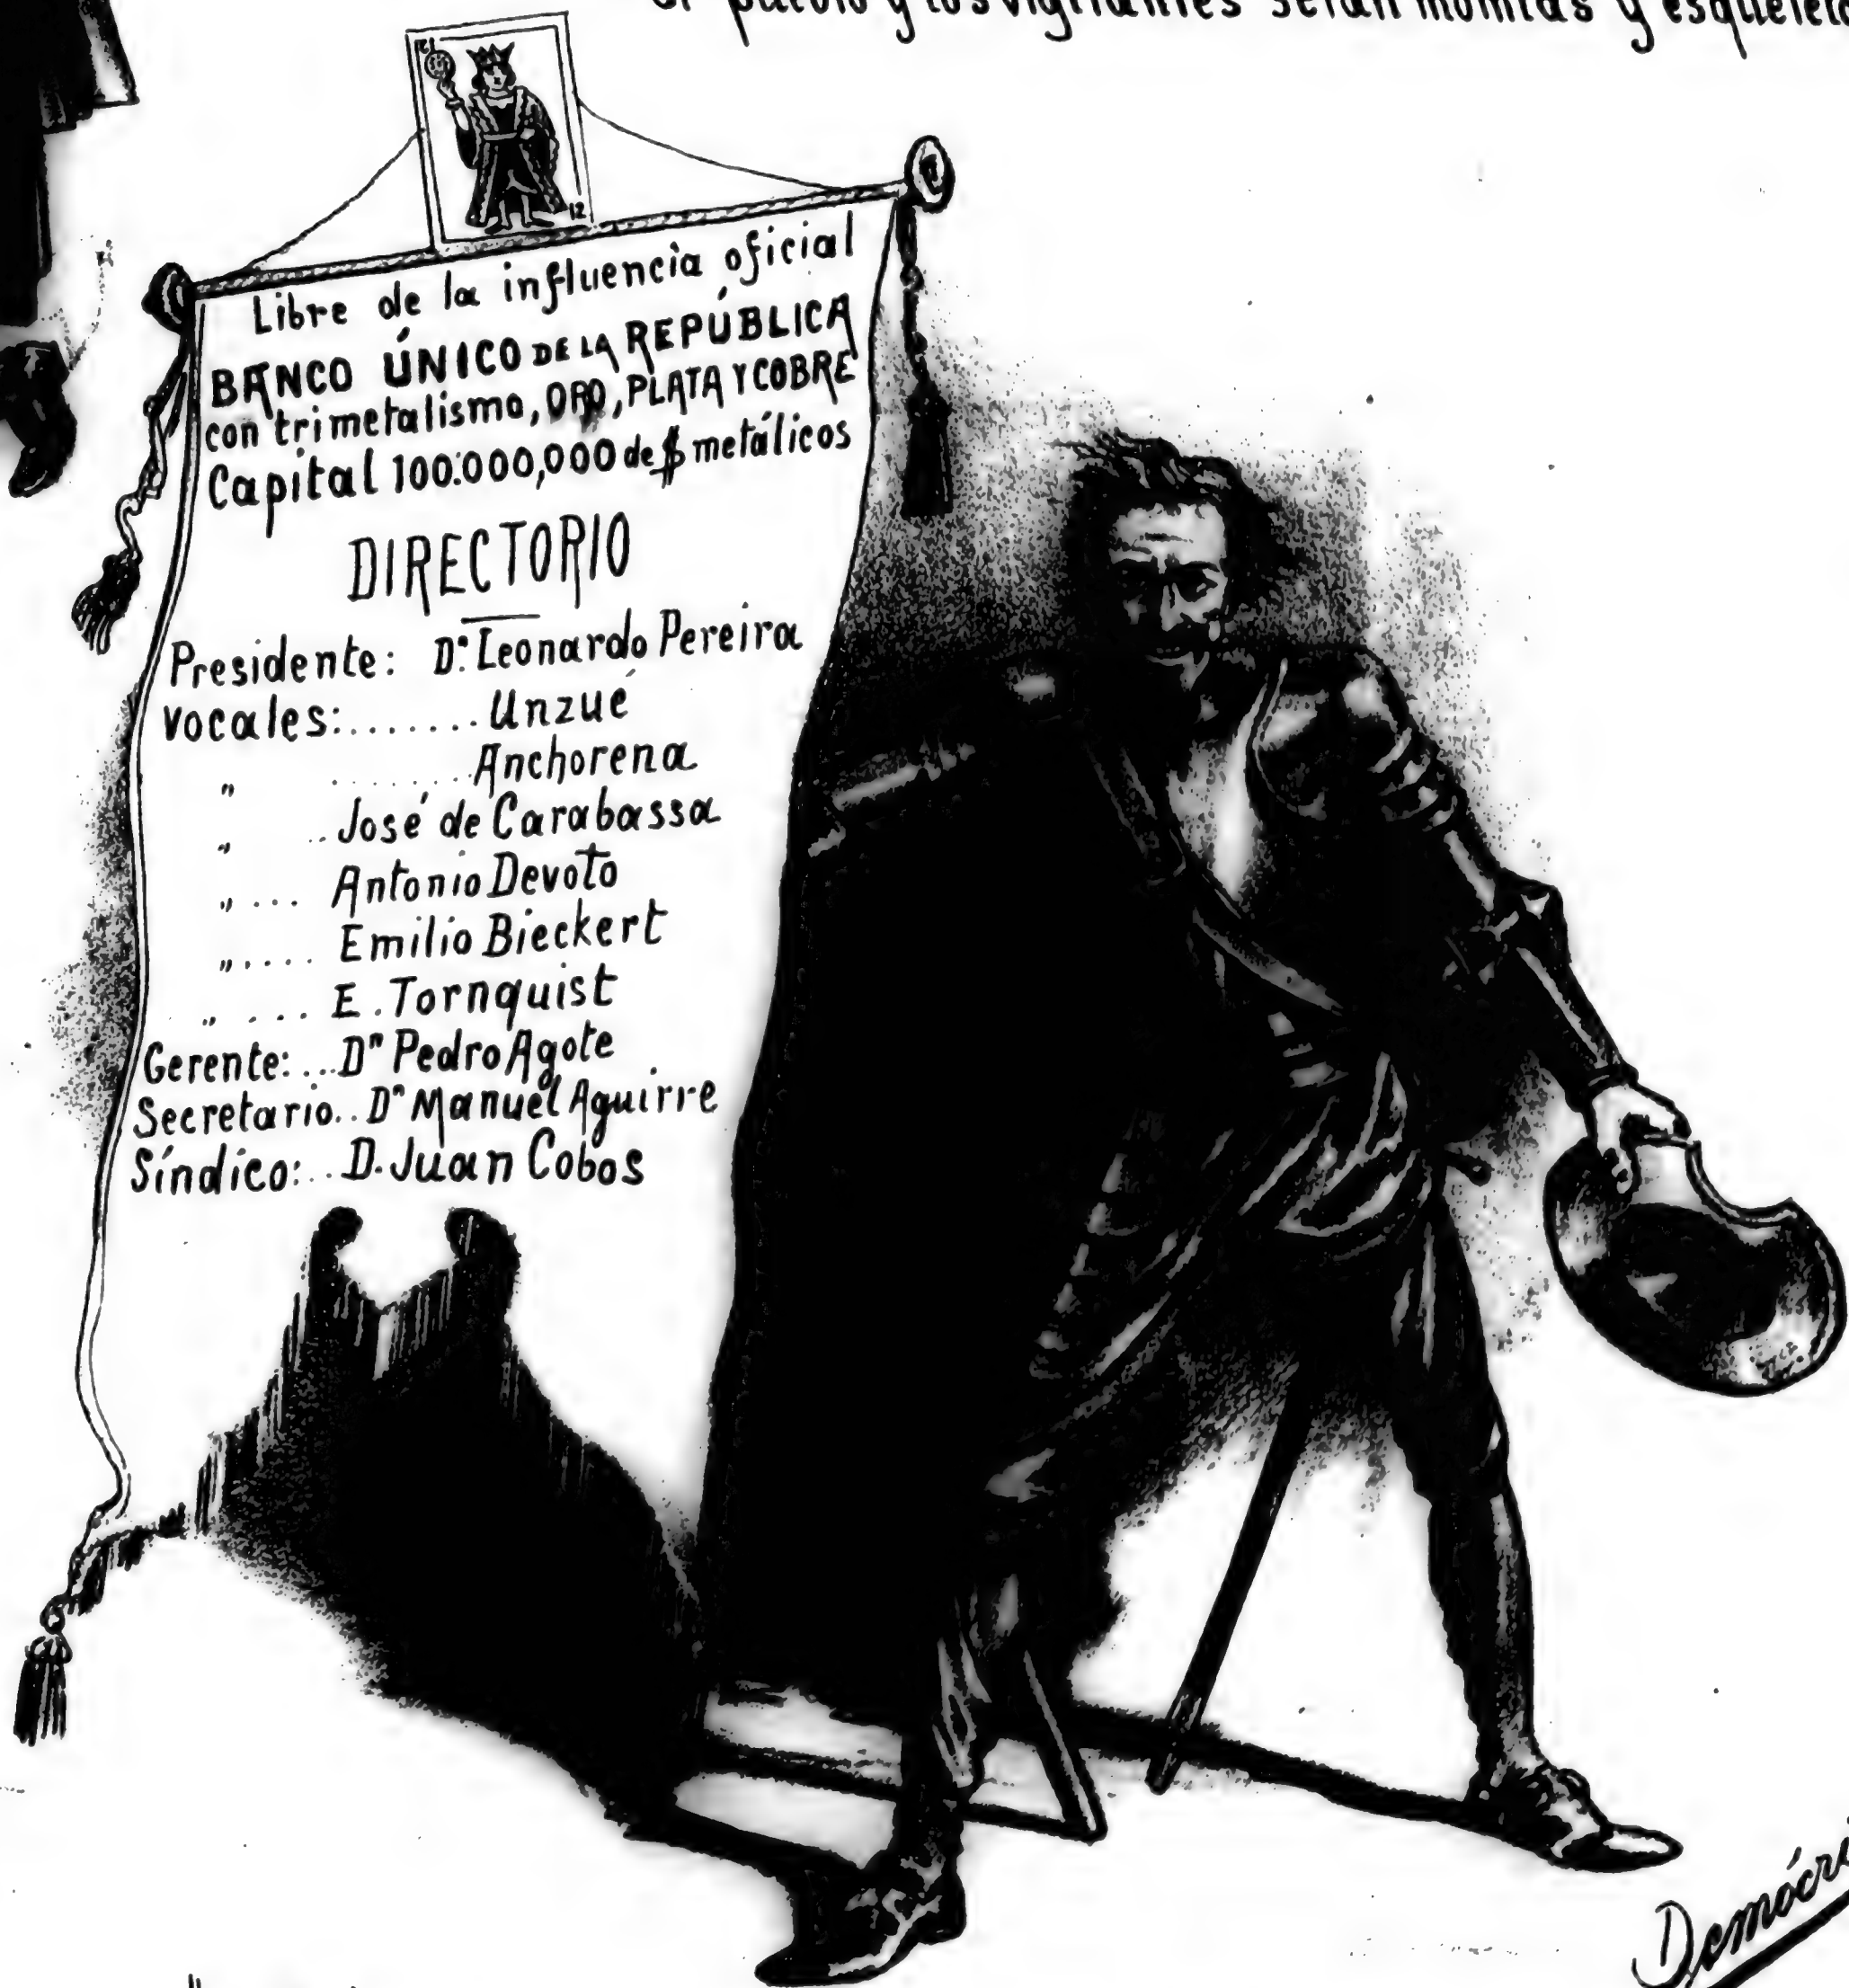 el pueblo y los vigilantes serán momias y
12
12
Libre de la influencia oficial
BANCO ÚNICO DE LA REPÚBLICA
con trimetalismo, ORO, PLATA Y COBRE
Capital 100.000,000 de $ metálicos
DIRECTORIO
Presidente: Dn. Leonardo Pereira
Vocales:....... Unzué
„ ........ Anchorena
„ .. José de Carabassa
„ ... Antonio Devoto
„ .... Emilio Bieckert
„ .... E. Tornquist
Gerente:... Dn Pedro Agote
Secretario.. Dn Manuel Aguirre
Síndico:.. D. Juan Cobos